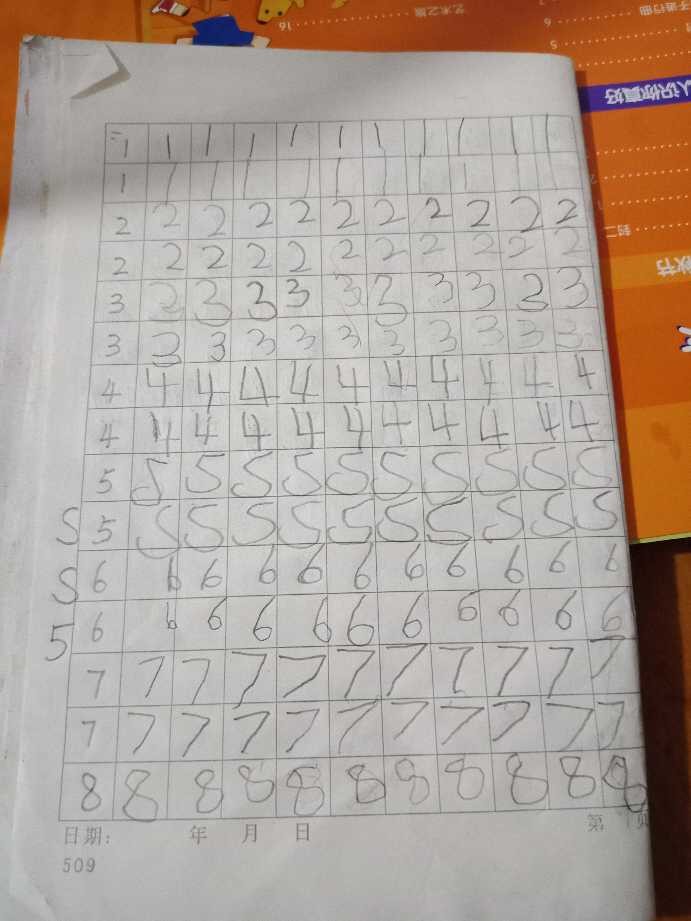 16 艺术之旅
子进行曲
6
5
认识你真好
1 1 1 1 1 1 1 1 1 1 1
1 1 1 1 1 1 1 1 1 1 1
2 2 2 2 2 2 2 2 2 2 2
2 2 2 2 2 2 2 2 2 2 2
3 3 3 3 3 3 3 3 3 3 3
3 3 3 3 3 3 3 3 3 3 3
4 4 4 4 4 4 4 4 4 4 4
4 4 4 4 4 4 4 4 4 4 4
5 5 5 5 5 5 5 5 5 5 5
5 5 5 5 5 5 5 5 5 5 5 5
5 6 6 6 6 6 6 6 6 6 6 6
5 6 6 6 6 6 6 6 6 6 6 6
7 7 7 7 7 7 7 7 7 7 7
7 7 7 7 7 7 7 7 7 7 7
8 8 8 8 8 8 8 8 8 8 8
日期: 年 月 日 第 页
509